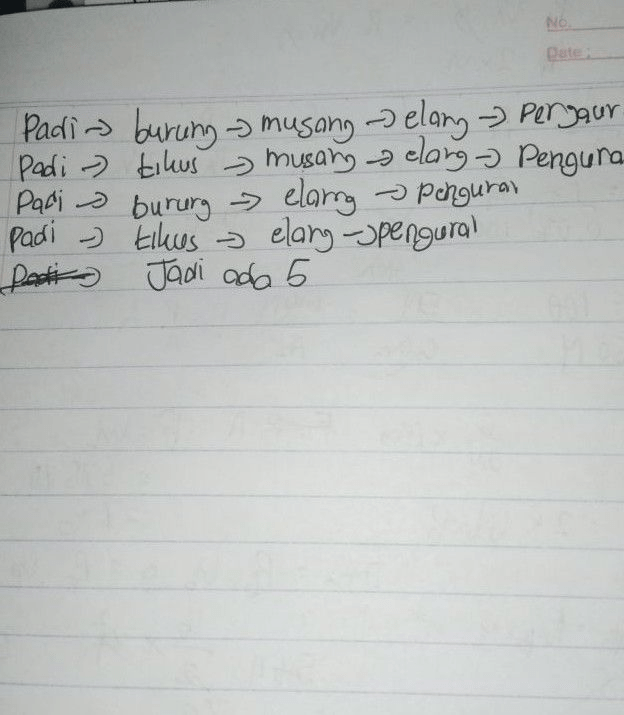 No.
Date :
Padi → burung → musang → elang → Pengaur
Padi → tikus → musang → elang → Pengura
Padi → burung → elang → pengurai
Padi → tikus → elang → pengurai
Padi → Jadi ada 5